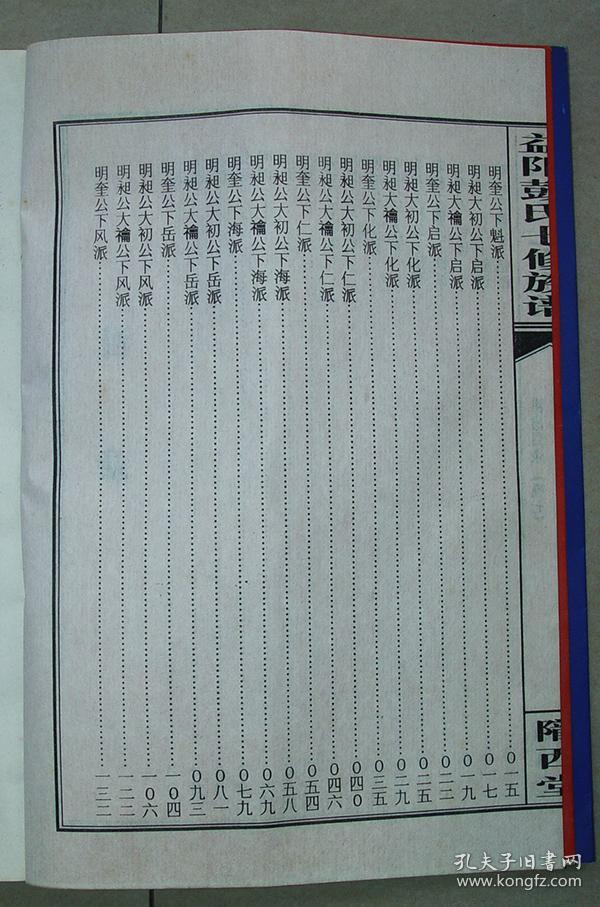 益阳彭氏七修族谱
隋西堂
明奎公下魁派……0一五
明昶大初公下启派……0一七
明昶大禴公下启派……0一九
明奎公下启派……0二二
明昶大初公下化派……0二五
明昶大禴公下化派……0二九
明奎公下化派……0三五
明昶公大初公下仁派……0四0
明昶公大禴公下仁派……0四六
明奎公下仁派……0五四
明昶公大初公下海派……0五八
明昶公大禴公下海派……0六九
明奎公下海派……0七九
明昶公大初公下岳派……0八一
明昶公大禴公下岳派……0九三
明奎公下岳派……一0四
明昶公大初公下风派……一0六
明昶公大禴公下风派……一二二
明奎公下风派……一三二
孔夫子旧书网
www.kongfz.com